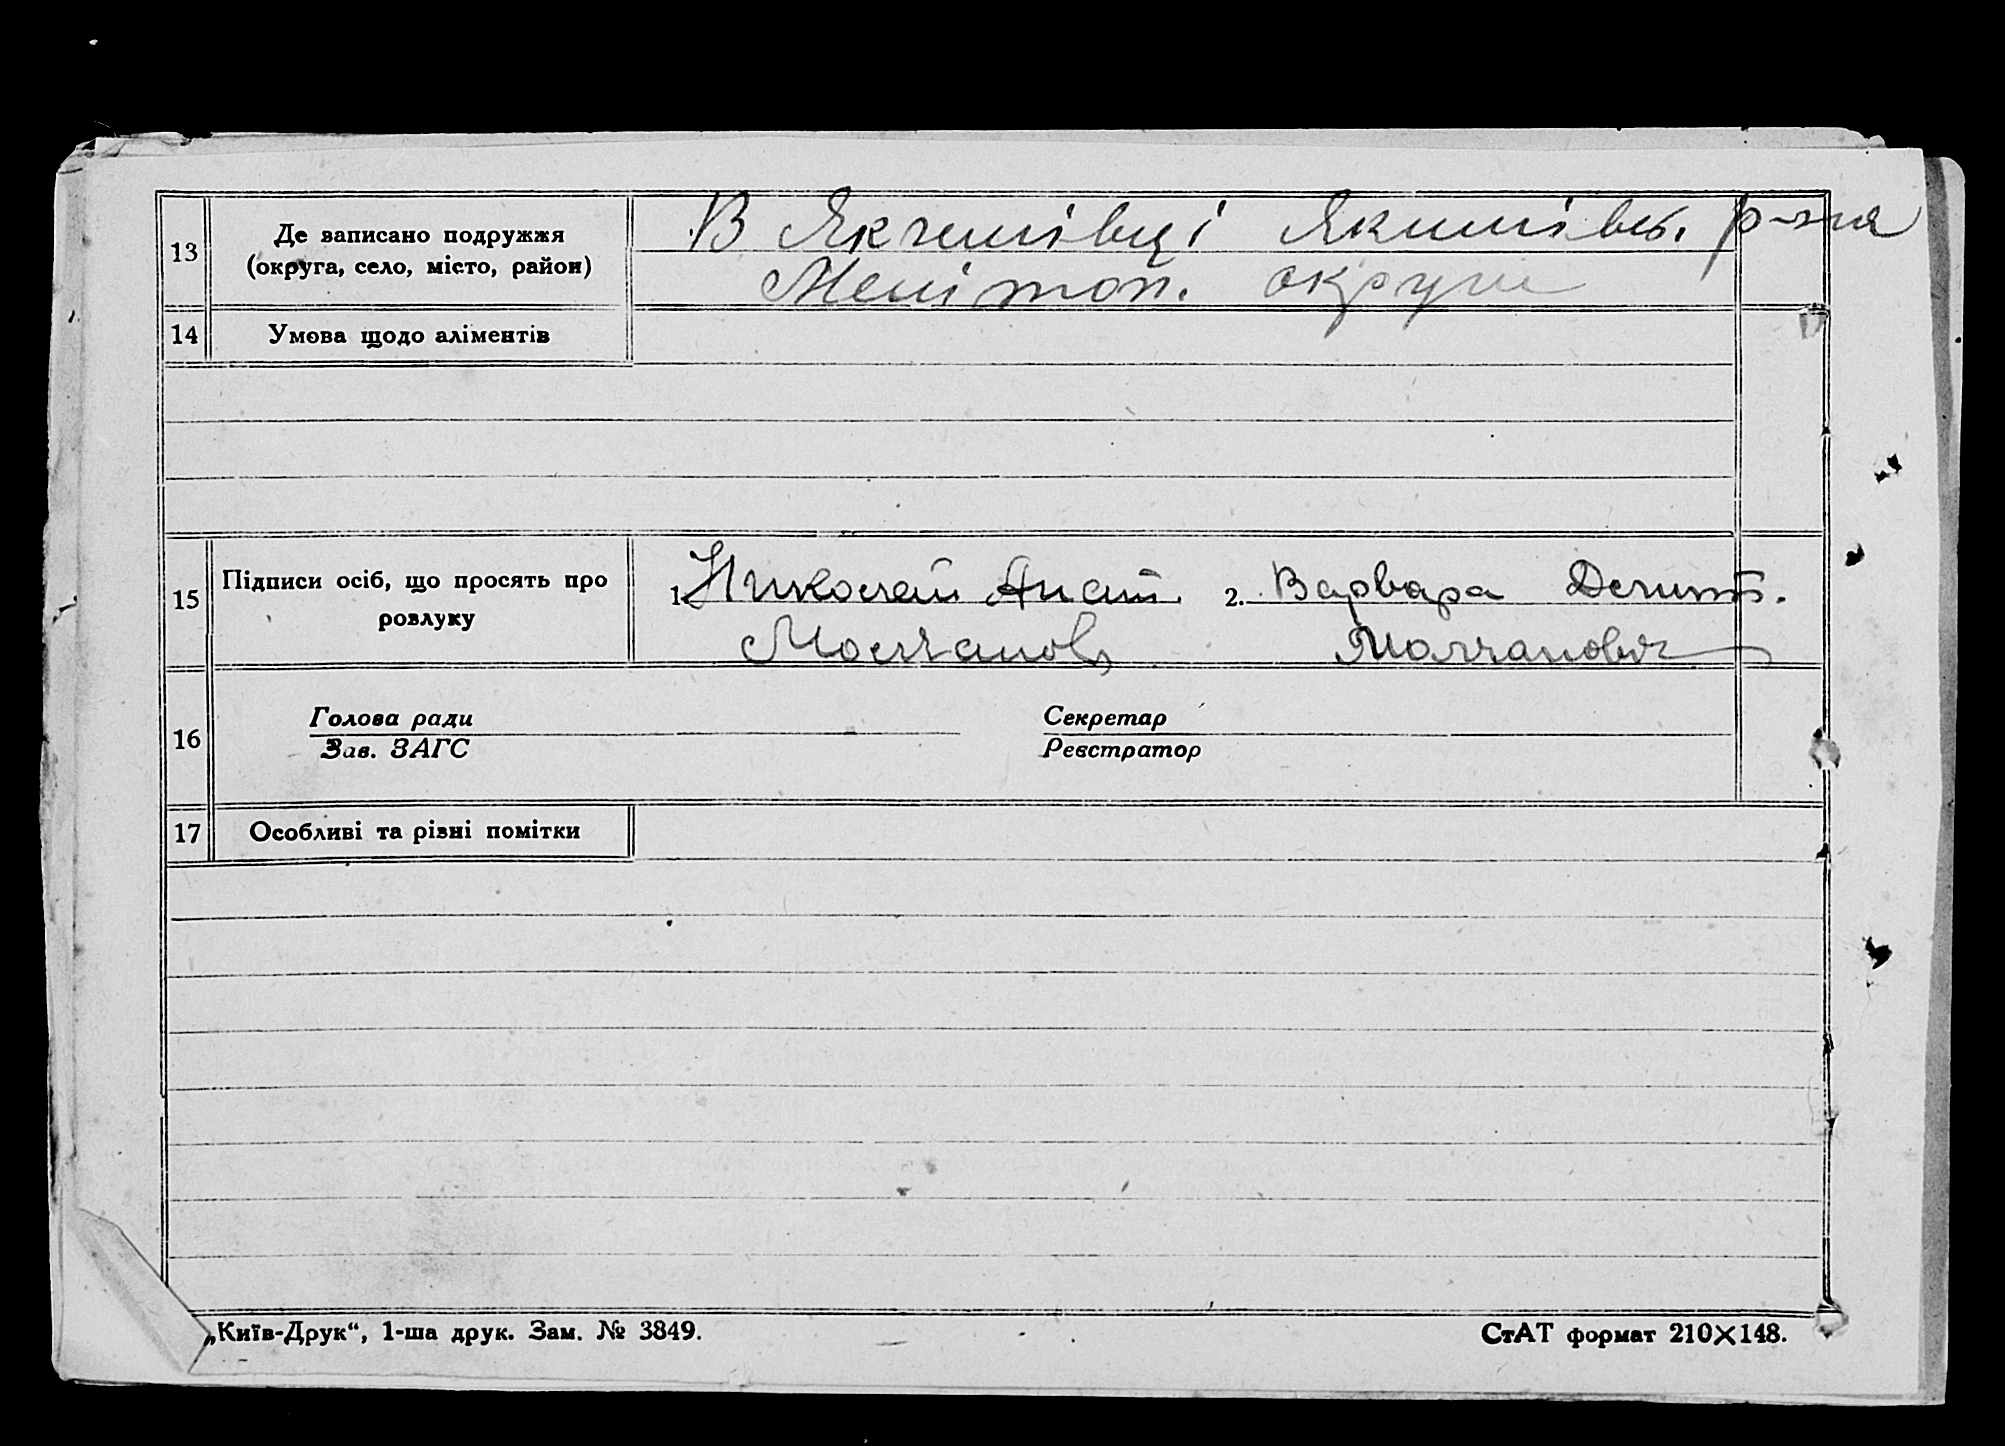 13
Де записано подружжя
(округа, село, місто, район)
В Якимівці Якимівс. р-на
Мелітоп. округи
14
Умова щодо аліментів
15
Підписи осіб, що просять про
розлуку
1. Николай Анат. 2. Варвара
Молчанов Молчанова
16
Голова ради
Зав. ЗАГС
Секретар
Реєстратор
17
Особливі та різні помітки
„Київ-Друк“, 1-ша друк. Зам. № 3849.
СтАТ формат 210×148.